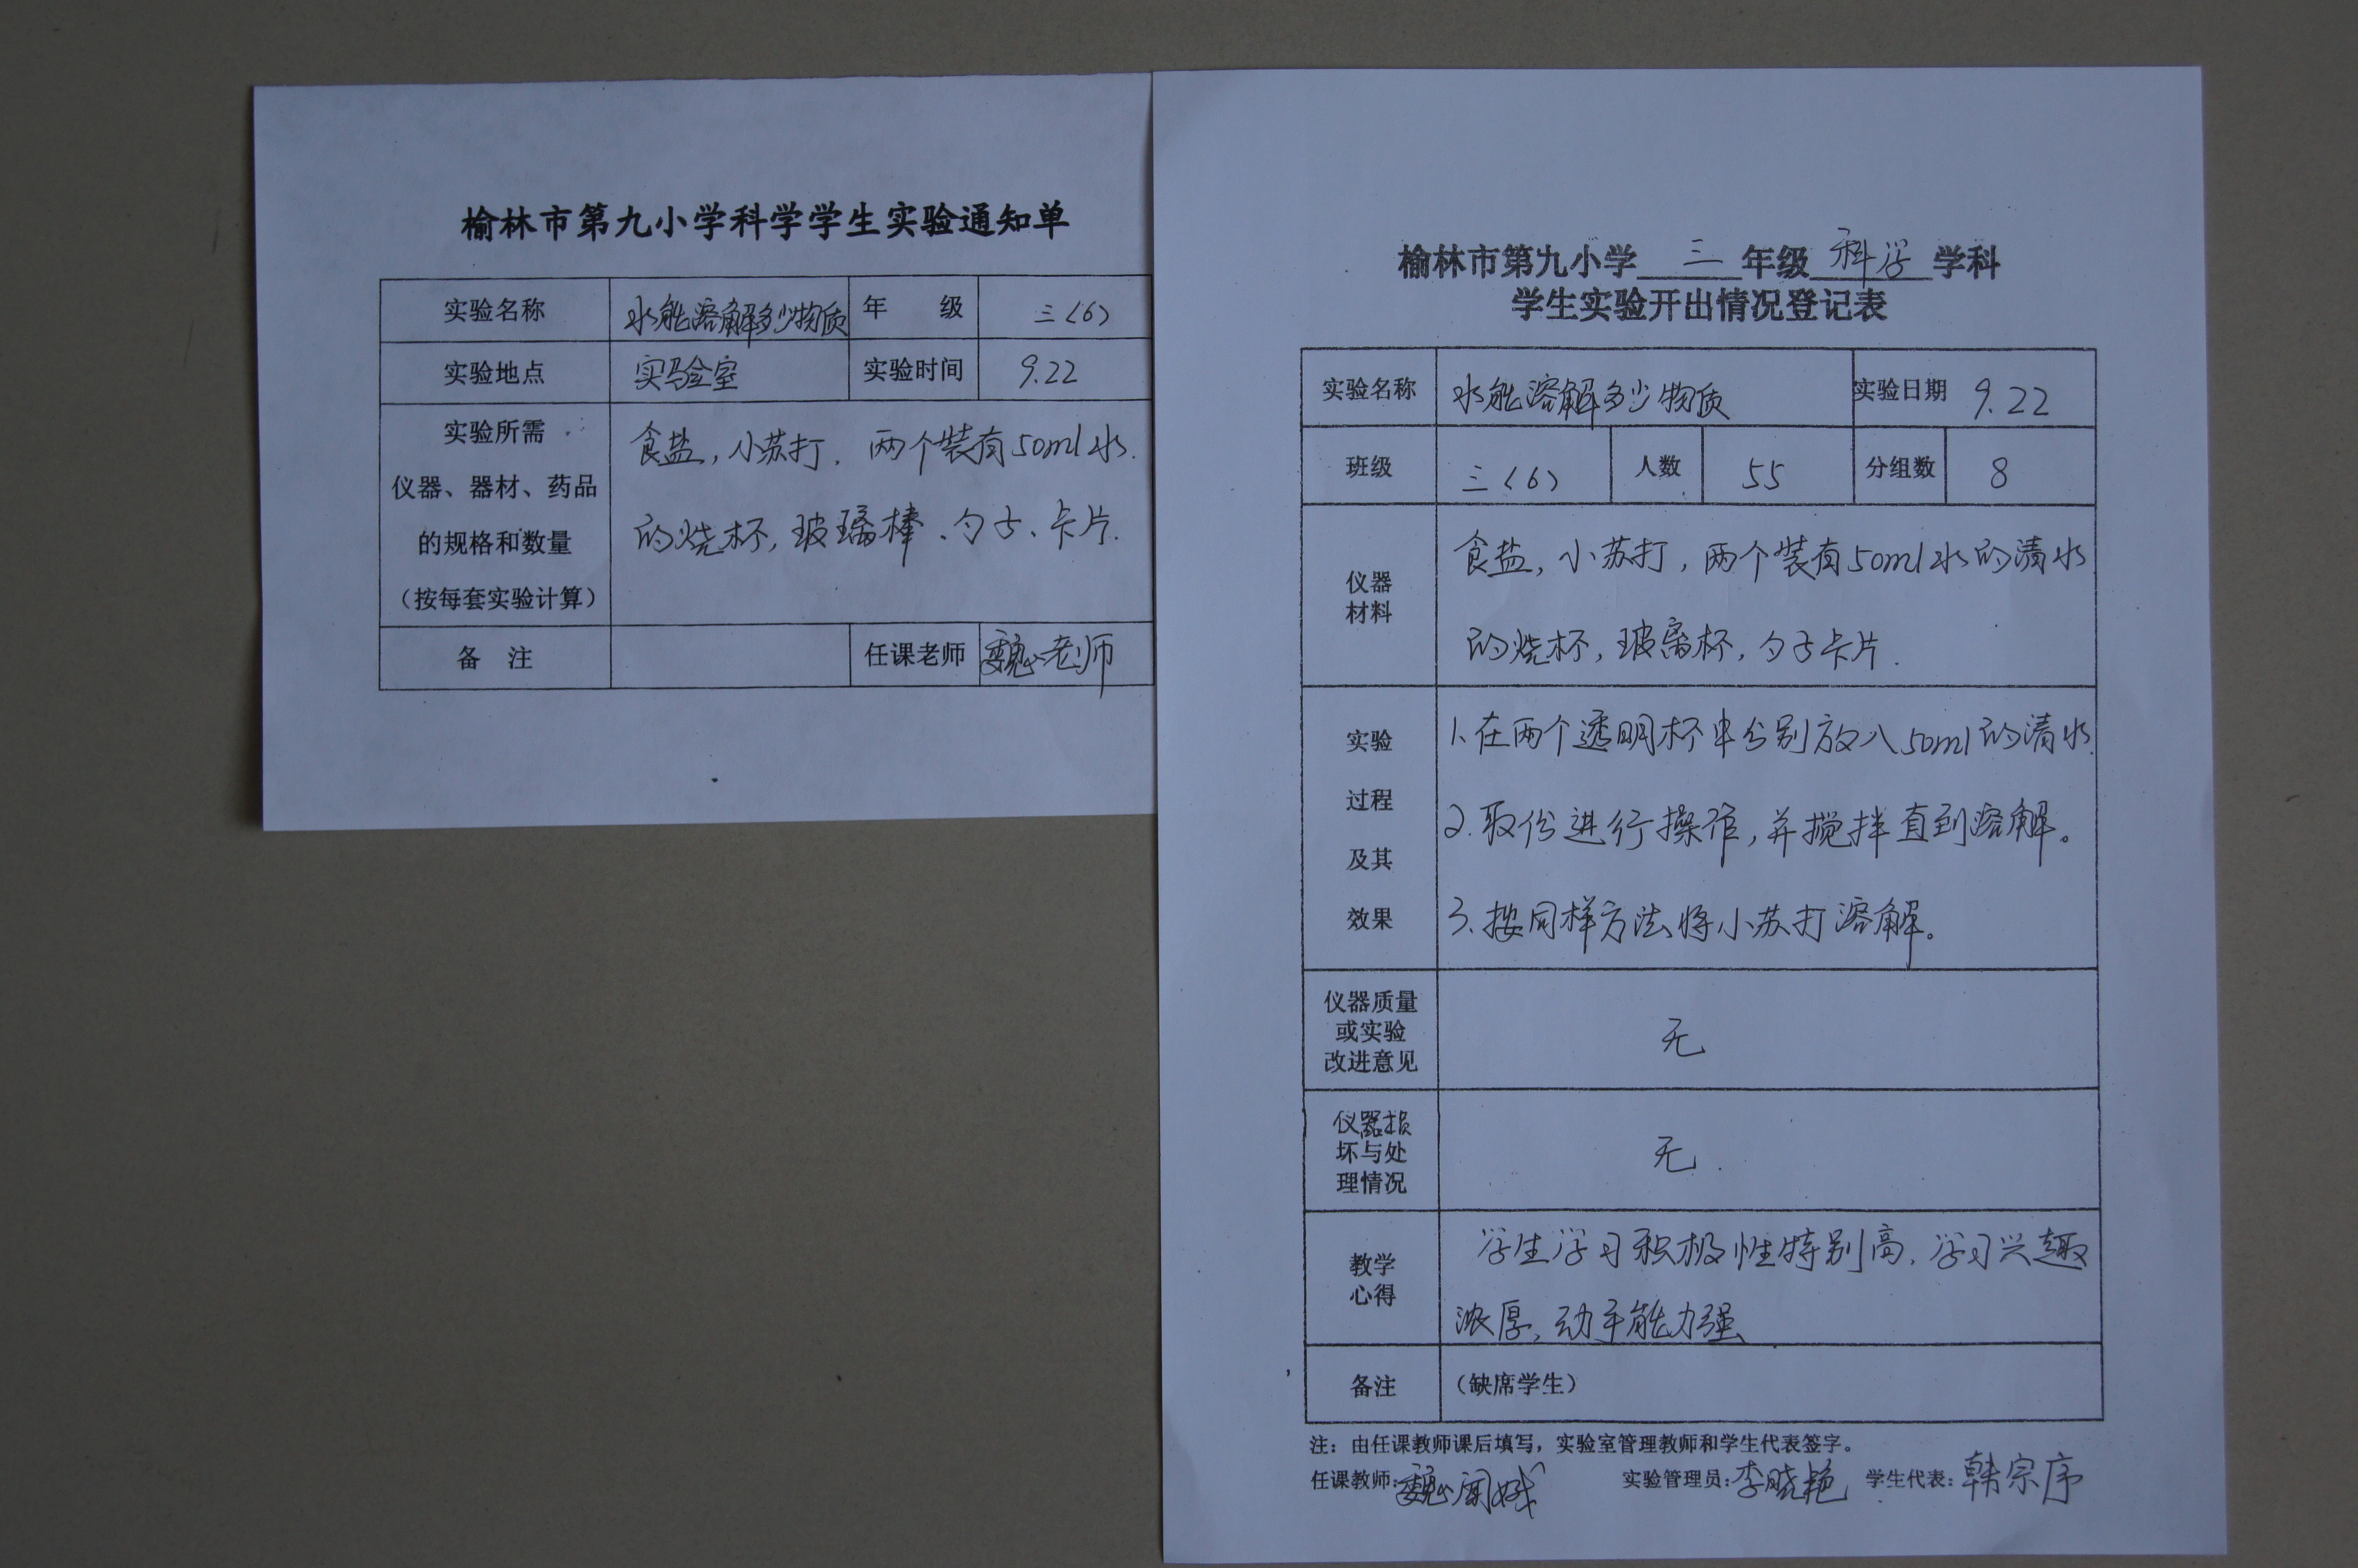 榆林市第九小学科学学生实验通知单
实验名称 水能溶解多少物质 年 级 三(6)
实验地点 实验室 实验时间 9.22
实验所需
仪器、器材、药品
的规格和数量
(按每套实验计算)
食盐,小苏打.两个装有50ml水.
的烧杯,玻璃棒、勺子、卡片.
备 注 任课老师 魏老师
榆林市第九小学 三 年级 科学 学科
学生实验开出情况登记表
实验名称 水能溶解多少物质 实验日期 9.22
班级 三(6) 人数 55 分组数 8
仪器
材料
食盐,小苏打,两个装有50ml水的清水
的烧杯,玻离杯,勺子卡片.
实验
过程
及其
效果
1.在两个透明杯中分别放入50ml的清水.
2.取份进行操作,并搅拌直到溶解。
3.按同样方法将小苏打溶解。
仪器质量
或实验
改进意见
无
仪器损
坏与处
理情况
无.
教学
心得
学生学习积极性特别高.学习兴趣
浓厚,动手能力强
备注 (缺席学生)
注:由任课教师课后填写,实验室管理教师和学生代表签字。
任课教师: 魏 实验管理员: 李晓艳 学生代表: 韩宗序